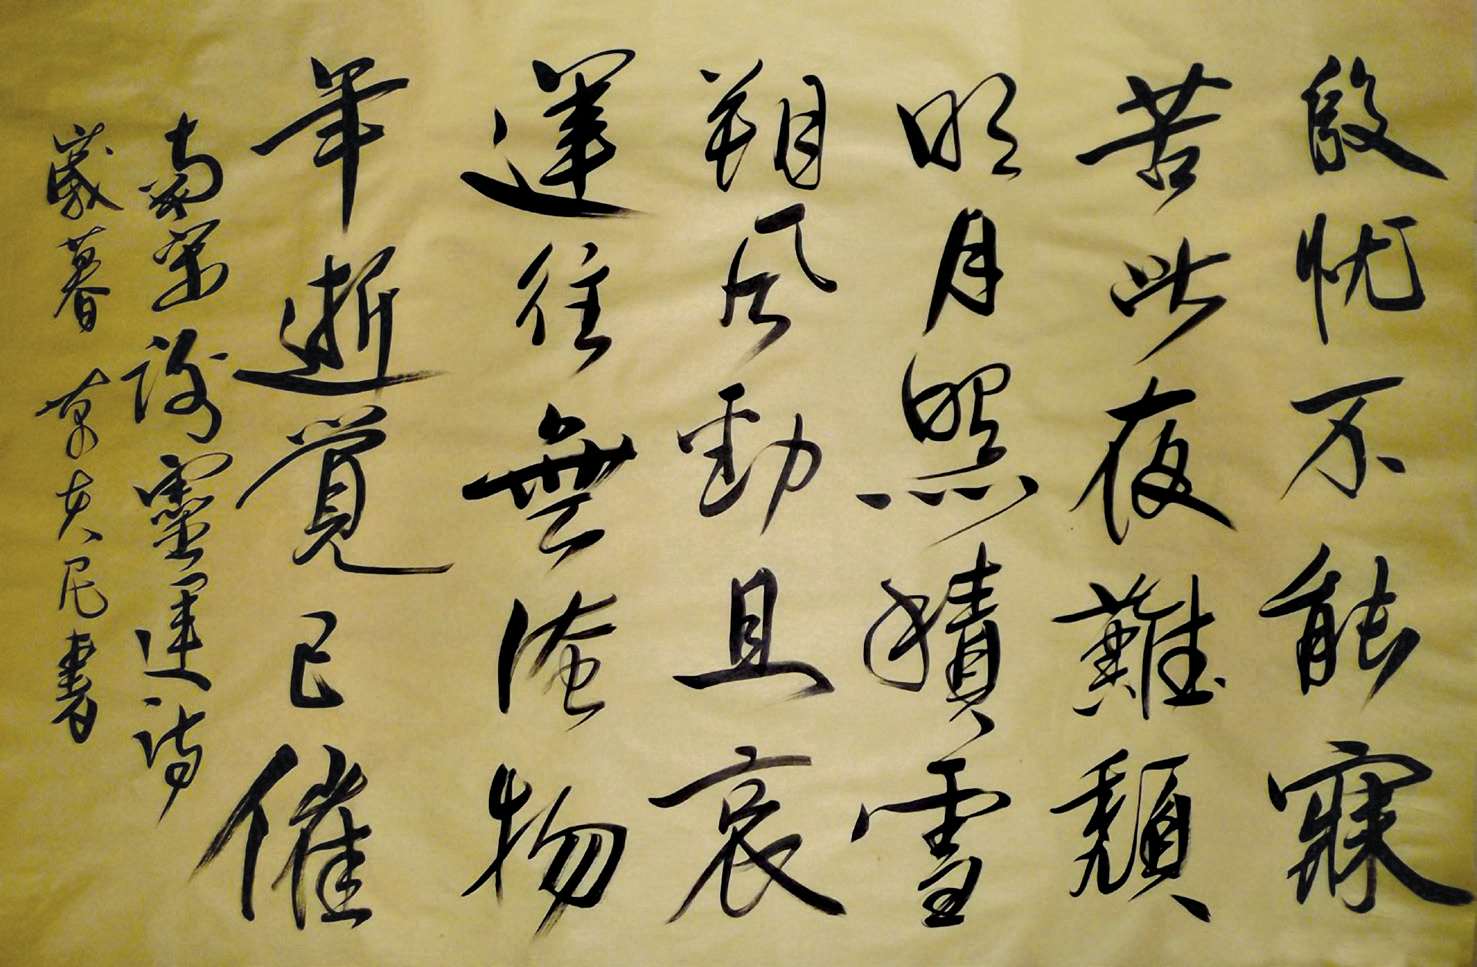 殷忧不能寐
苦此夜難頹
明月照積雪
朔風勁且哀
運往無淹物
年逝覺已催
南宋謝靈運诗
歲暮 草夫尼書